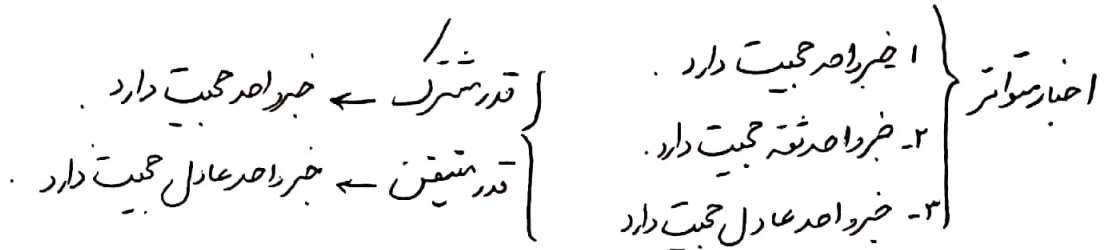 اخبار متواتر
۱ خبر واحد حجیت دارد .
۲ـ خبر واحد ثقه حجیت دارد .
۳ـ خبر واحد عادل حجیت دارد
قدر مشترک ← خبر واحد حجیت دارد .
قدر متیقن ← خبر واحد عادل حجیت دارد .